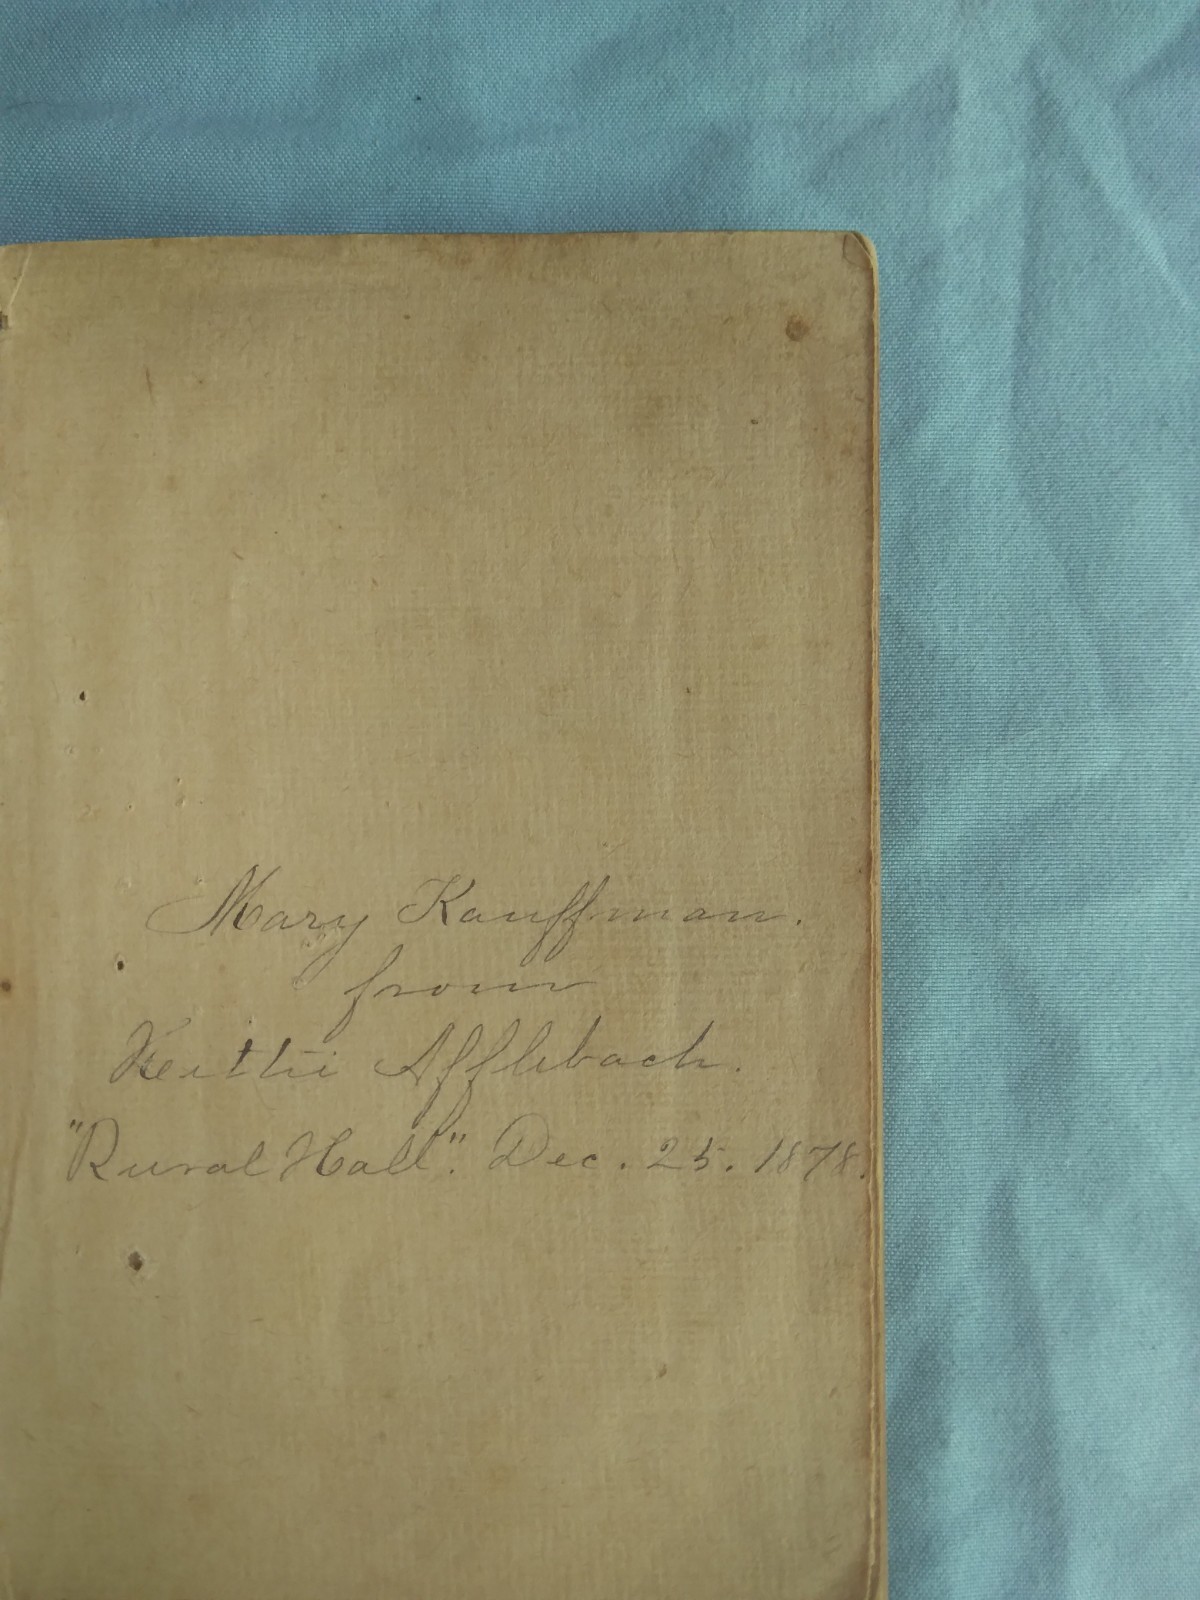 Mary Kauffman.
from
Afflebach.
"Rural Hall". Dec. 25. 1878.